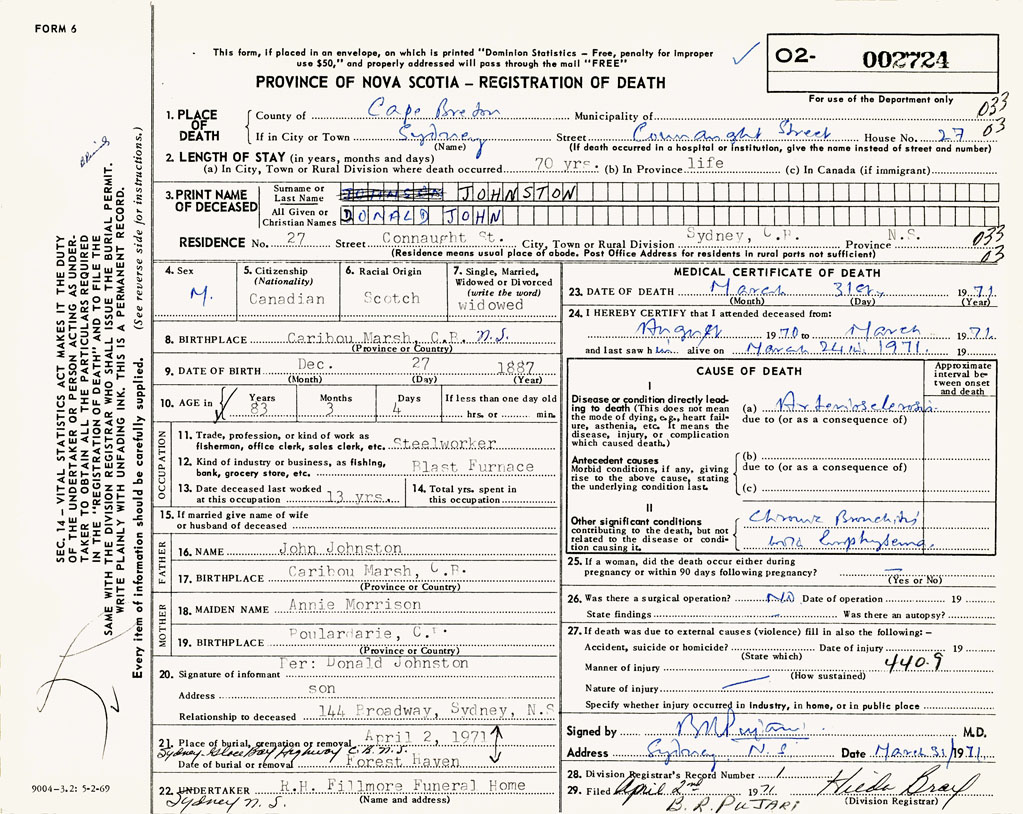 FORM 6
This form, if placed in an envelope, on which is printed "Dominion Statistics – Free, penalty for improper
use $50," and properly addressed will pass through the mail "FREE"
02- 002724
PROVINCE OF NOVA SCOTIA – REGISTRATION OF DEATH
For use of the Department only
1. PLACE OF DEATH
County of Cape Breton Municipality of 033
If in City or Town Sydney Street Connaught Street House No. 27 03
(Name) (If death occurred in a hospital or institution, give the name instead of street and number)
2. LENGTH OF STAY (in years, months and days)
(a) In City, Town or Rural Division where death occurred 70 yrs. (b) In Province life (c) In Canada (if immigrant)
3. PRINT NAME OF DECEASED
Surname or Last Name JOHNSTON
All Given or Christian Names DONALD JOHN
RESIDENCE No. 27 Street Connaught St. City, Town or Rural Division Sydney, C.B. Province N.S. 033
(Residence means usual place of abode. Post Office Address for residents in rural parts not sufficient) 03
4. Sex
M.
5. Citizenship
(Nationality)
Canadian
6. Racial Origin
Scotch
7. Single, Married,
Widowed or Divorced
(write the word)
widowed
8. BIRTHPLACE Caribou Marsh, C.B. N.S.
(Province or Country)
9. DATE OF BIRTH Dec. 27 1887
(Month) (Day) (Year)
10. AGE in
Years Months Days If less than one day old
83 3 4 hrs. or min.
OCCUPATION
11. Trade, profession, or kind of work as
fisherman, office clerk, sales clerk, etc. Steelworker
12. Kind of industry or business, as fishing,
bank, grocery store, etc. Blast Furnace
13. Date deceased last worked
at this occupation 13 yrs.
14. Total yrs. spent in
this occupation
15. If married give name of wife
or husband of deceased
FATHER
16. NAME John Johnston
17. BIRTHPLACE Caribou Marsh, C.B.
(Province or Country)
MOTHER
18. MAIDEN NAME Annie Morrison
19. BIRTHPLACE Boulardarie, C.B.
(Province or Country)
Per: Donald Johnston
20. Signature of informant
son
Address
144 Broadway, Sydney, N.S
Relationship to deceased
April 2, 1971
21. Place of burial, cremation or removal
Sydney-Glace Bay Highway C.B. N.S.
Date of burial or removal Forest Haven
22. UNDERTAKER R.H. Fillmore Funeral Home
Sydney N.S. (Name and address)
MEDICAL CERTIFICATE OF DEATH
23. DATE OF DEATH March 31st, 1971
(Month) (Day) (Year)
24. I HEREBY CERTIFY that I attended deceased from:
August 1970 to March 1971
and last saw him alive on March 24th, 1971. 19
CAUSE OF DEATH
Approximate
interval be-
tween onset
and death
I
Disease or condition directly lead-
ing to death (This does not mean
the mode of dying, e.g., heart fail-
ure, asthenia, etc. It means the
disease, injury, or complication
which caused death.)
(a) Arteriosclerosis
due to (or as a consequence of)
Antecedent causes
Morbid conditions, if any, giving
rise to the above cause, stating
the underlying condition last.
(b)
due to (or as a consequence of)
(c)
II
Other significant conditions
contributing to the death, but not
related to the disease or condi-
tion causing it.
Chronic Bronchitis
with Emphysema.
25. If a woman, did the death occur either during
pregnancy or within 90 days following pregnancy? —
(Yes or No)
26. Was there a surgical operation? No Date of operation 19
State findings Was there an autopsy?
27. If death was due to external causes (violence) fill in also the following: –
Accident, suicide or homicide? Date of injury 19
(State which) 440.9
Manner of injury
(How sustained)
Nature of injury
Specify whether injury occurred in industry, in home, or in public place
Signed by B R Pujari M.D.
Address Sydney N.S Date March 31/1971.
28. Division Registrar's Record Number 1
29. Filed April 2nd 1971 Hilda Bray
B. R. PUJARI (Division Registrar)
SEC. 14 – VITAL STATISTICS ACT MAKES IT THE DUTY
OF THE UNDERTAKER OR PERSON ACTING AS UNDER-
TAKER TO OBTAIN ALL THE PARTICULARS REQUIRED
IN THE "REGISTRATION OF DEATH" AND TO FILE THE
SAME WITH THE DIVISION REGISTRAR WHO SHALL ISSUE THE BURIAL PERMIT.
WRITE PLAINLY WITH UNFADING INK. THIS IS A PERMANENT RECORD.
Every item of information should be carefully supplied. (See reverse side for instructions.)
9004-3.2: 5-2-69